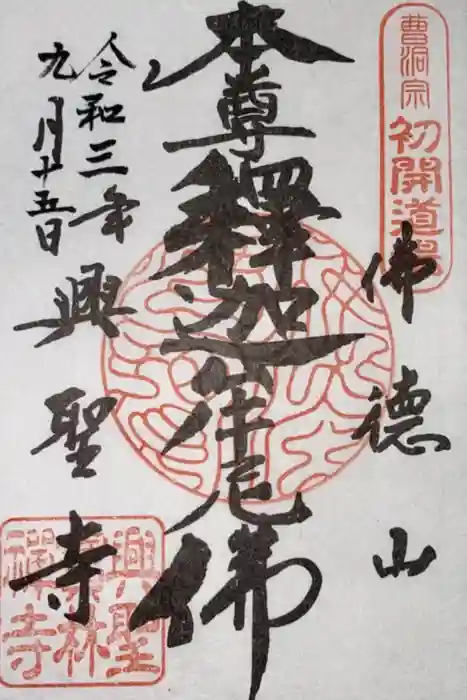 曹洞宗
初開道場
佛德山
本尊釋迦牟尼佛
令和三年
九月十五日
興聖寺
興聖
禅寺